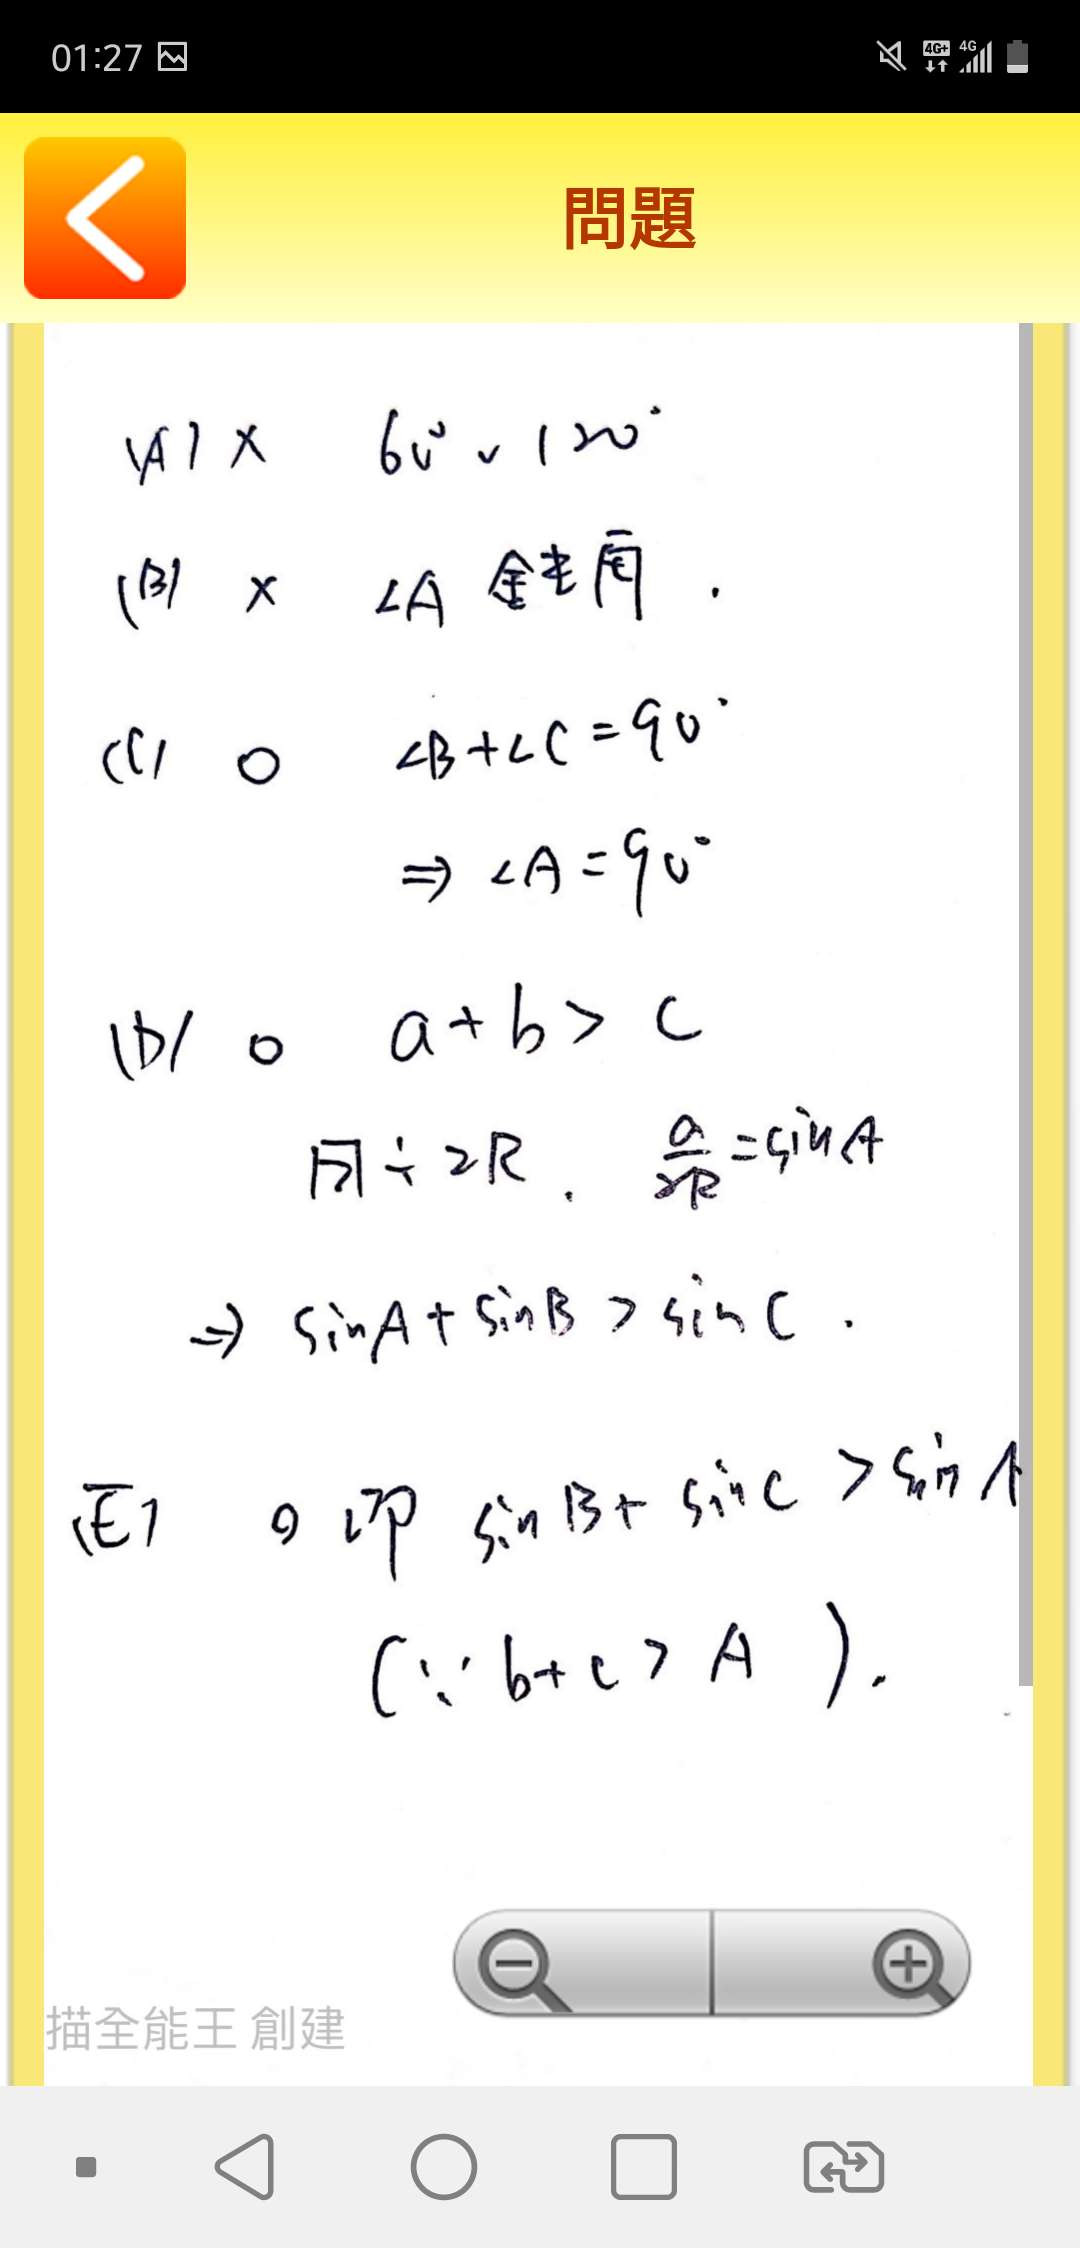 01:27
4G+ 4G
問題
(A) × 60° v 120°
(B) × ∠A 鈍角.
(C) ○ ∠B+∠C=90°
⇒ ∠A=90°
(D) ○ a+b> c
同÷2R. a/2R=sinA
⇒ sinA+sinB>sinC.
(E) ○ 即 sinB+sinC>sinA
(∵ b+c>A).
描全能王 創建